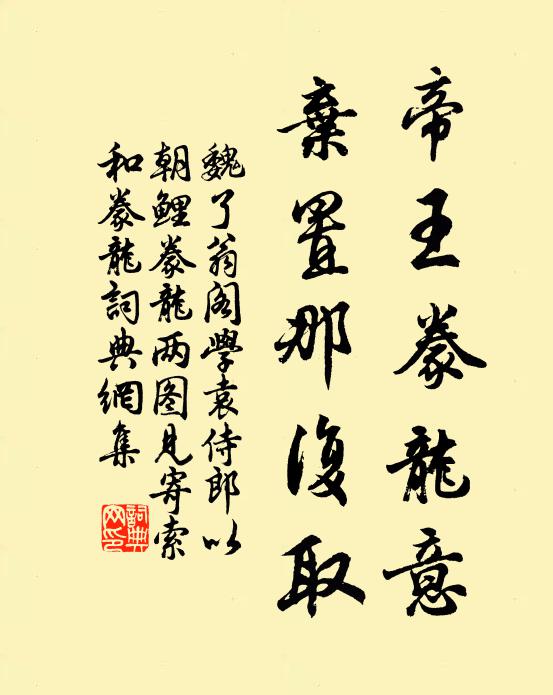 帝王豢龍意
棄置那復取
魏了翁閣學袁侍郎以
朝鯉豢龍两图見寄索
和豢龍詞典網集
詞典
网印